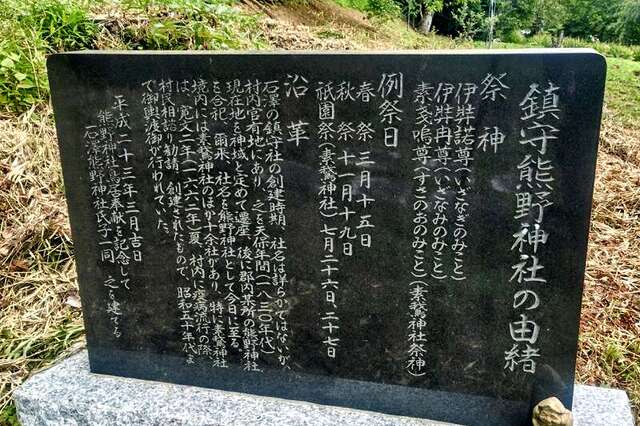 鎮守熊野神社の由緒
祭神
伊弉諾尊(いざなぎのみこと)
伊弉冉尊(いざなみのみこと)
素戔嗚尊(すさのおのみこと)(素鵞神社祭神)
例祭日
春祭 三月十五日
秋祭 十一月十九日
祇園祭(素鵞神社)七月二十六日、二十七日
沿革
石澤の鎮守社の創建時期、社名は詳らかではないが、
村内官有地にあり、之を天保年間(一八三〇年代)
現在地を神域と定めて遷座、後に郡内某所の熊野神社
を合祀、爾来、社名を熊野神社として今日に至る。
境内には素鵞神社のほか十余社があり、特に素鵞神社
は、寛文二年(一六六二年)夏、村内に疫病流行の際
村民相諮り勧請、創建されたもので、昭和五十年代ま
で御輿渡御が行われていた。
平成二十三年三月吉日
熊野神社
奉献を記念して
石澤熊野神社氏子一同 之を建てる